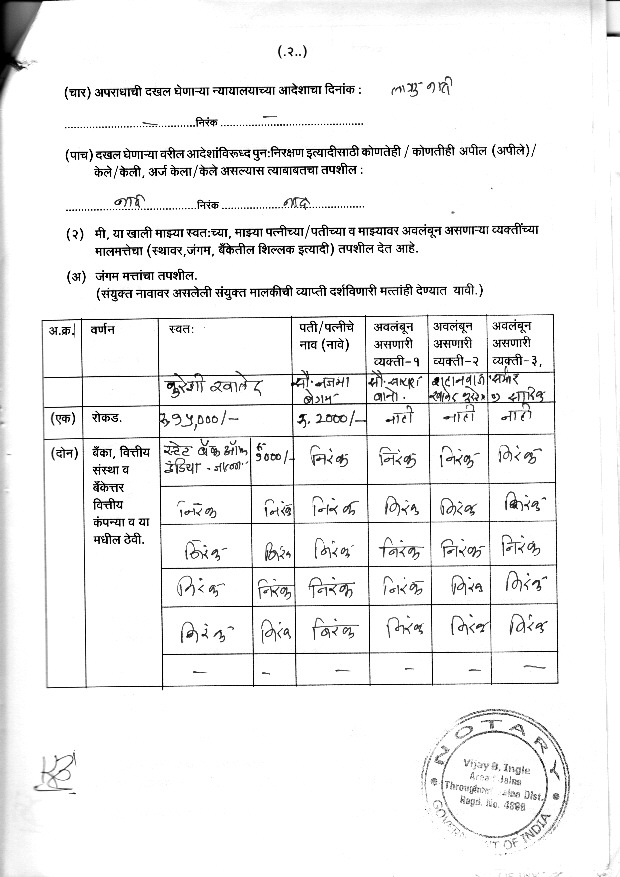 (.२..)
(चार) अपराधाची दखल घेणाऱ्या न्यायालयाच्या आदेशाचा दिनांक : लागु नाही
..............................निरंक ..............................
(पाच) दखल घेणाऱ्या वरील आदेशांविरूध्द पुन:निरक्षण इत्यादीसाठी कोणतेही / कोणतीही अपील (अपीले)/
केले/केली, अर्ज केला/केले असल्यास त्याबाबतचा तपशील :
नाही ..........निरंक .......... नाही
(२) मी, या खाली माझ्या स्वत:च्या, माझ्या पत्नीच्या/पतीच्या व माझ्यावर अवलंबून असणाऱ्या व्यक्तींच्या
मालमत्तेचा (स्थावर,जंगम, बँकेतील शिल्लक इत्यादी) तपशील देत आहे.
(अ) जंगम मत्तांचा तपशील.
(संयुक्त नावावर असलेली संयुक्त मालकीची व्याप्ती दर्शविणारी मत्तांही देण्यात यावी.)
अ.क्र. वर्णन स्वत: पती/पत्नीचे नाव (नावे) अवलंबून असणारी व्यक्ती-१ अवलंबून असणारी व्यक्ती-२ अवलंबून असणारी व्यक्ती-३,
कुरेशी खालेद सौ. नजमा बेगम सौ. बानो.
(एक) रोकड. रु.१५,000/- रु. 2000/- नाही नाही नाही
(दोन) बँका, वित्तीय संस्था व बँकेत्तर वित्तीय कंपन्या व या मधील ठेवी. स्टेट बँक ऑफ इंडिया - जालना रु 9000/- निरंक निरंक निरंक निरंक
निरंक निरंक निरंक निरंक निरंक निरंक
निरंक निरंक निरंक निरंक निरंक निरंक
निरंक निरंक निरंक निरंक निरंक निरंक
निरंक निरंक निरंक निरंक निरंक निरंक
– – – – – –
NOTARY
Vijay B. Ingle
Area : Jalna
Throughout Jalna Dist.
Regd. No. 4898
GOVERNMENT OF INDIA